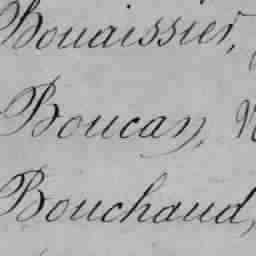 Bouaissier,
Boucay,
Bouchaud,